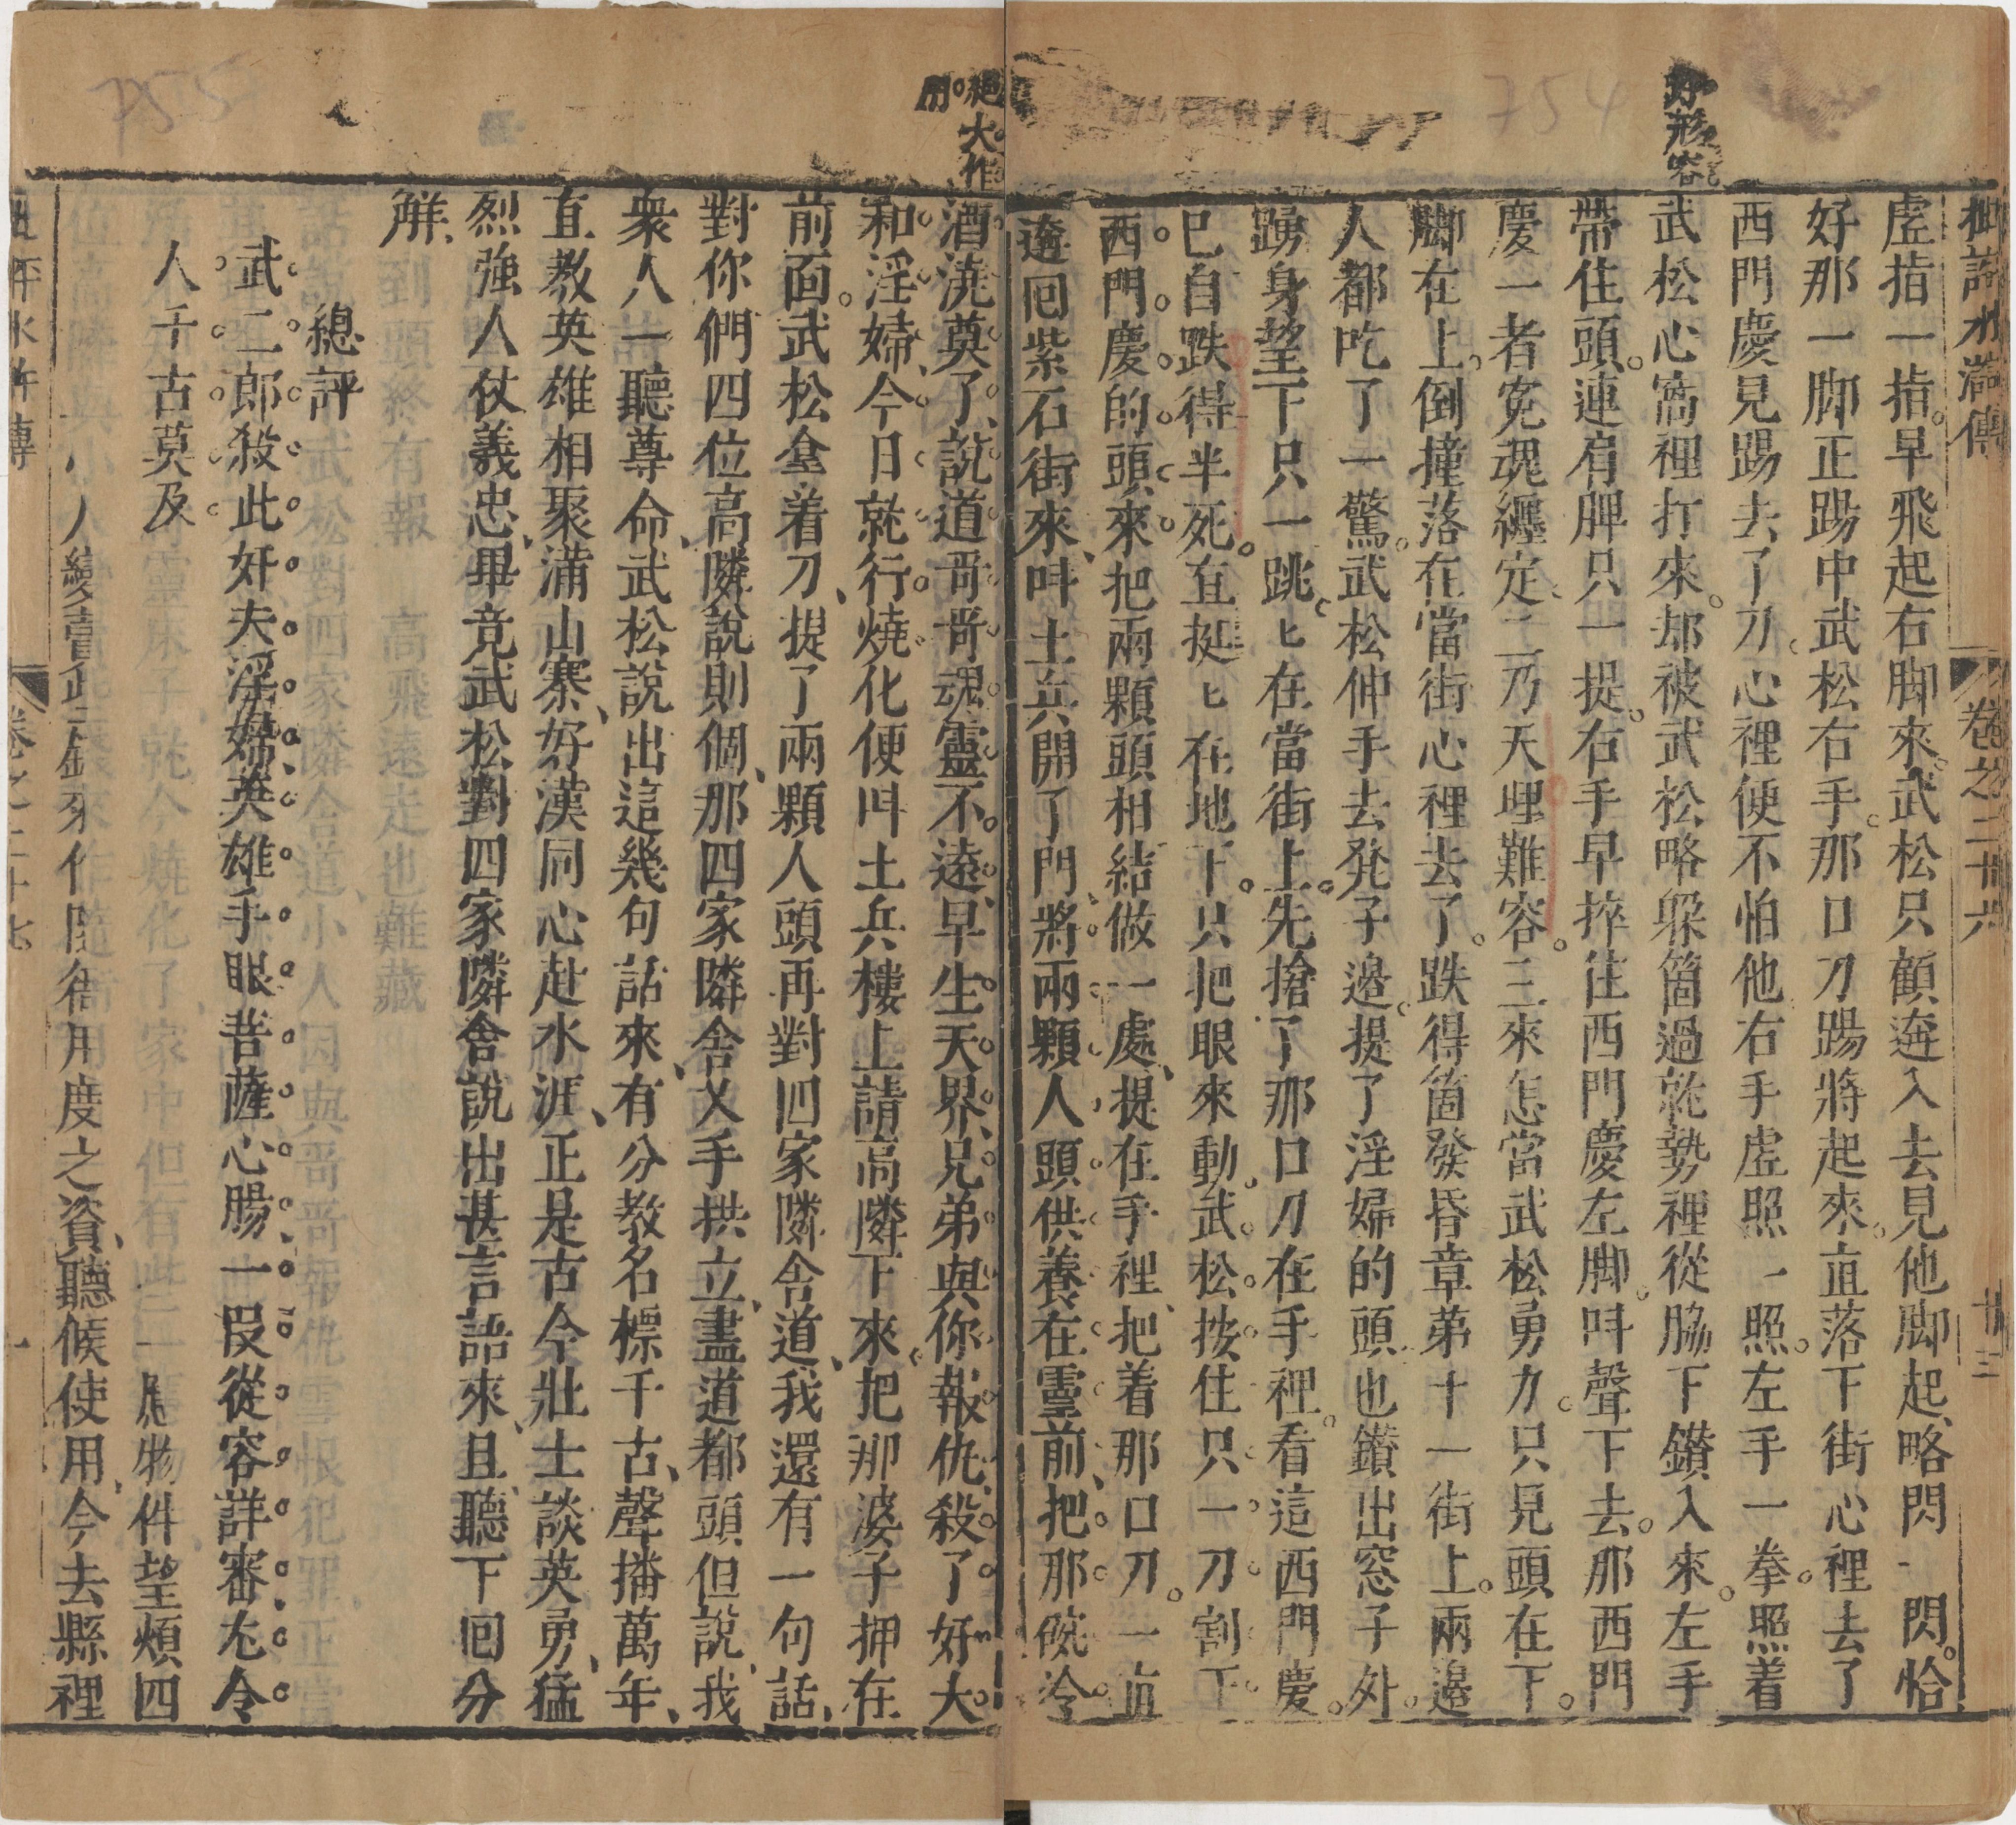 好形容
卷之二十六
廿三
虛指一指早飛起右脚來武松只顧逩入去見他脚起略閃一閃恰
好那一脚正踢中武松右手那口刀踢將起來直落下街心裡去了
西門慶見踢去了刀心裡便不怕他右手虛照一照左手一拳照着
武松心窩裡打來却被武松略躱箇過就勢裡從脇下鑚入來左手
帶住頭連肩胛只一提右手早捽住西門慶左脚呌聲下去那西門
慶一者寃魂纒定二乃天理難容三來怎當武松勇力只見頭在下
脚在上倒撞落在當街心裡去了跌得箇發昏章第十一街上兩邉
人都吃了一驚武松伸手去凳子邉提了淫婦的頭也鑚出窓子外
踴身望下只一跳匕在當街上先搶了那口刀在手裡看這西門慶
巳自跌得半死直挺匕在地下只把眼來動武松按住只一刀割下
西門慶的頭來把兩顆頭相結做一處提在手裡把着那口刀一直
逩囘紫石街來呌土兵開了門將兩顆人頭供養在靈前把那碗冷
絕大作用
酒澆奠了說道哥哥魂靈不遠早生天界兄弟與你報仇殺了奸夫
和淫婦今日就行燒化便呌土兵樓上請高隣下來把那婆子押在
前面武松拿着刀提了兩顆人頭再對四家隣舍道我還有一句話
對你們四位高隣說則個那四家隣舍叉手拱立盡道都頭但說我
衆人一聽尊命武松說出這幾句話來有分教名標千古聲播萬年
直教英雄相聚滿山寨好漢同心赴水涯正是古今壯士談英勇猛
烈強人仗義忠畢竟武松對四家隣舍說出甚言語來且聽下囘分
觧
總評
武二郎殺此奸夫淫婦英雄手眼菩薩心腸一叚從容詳審尤令
人千古莫及
物件望煩四
人變賣些
用度之資聽候使用今去縣裡